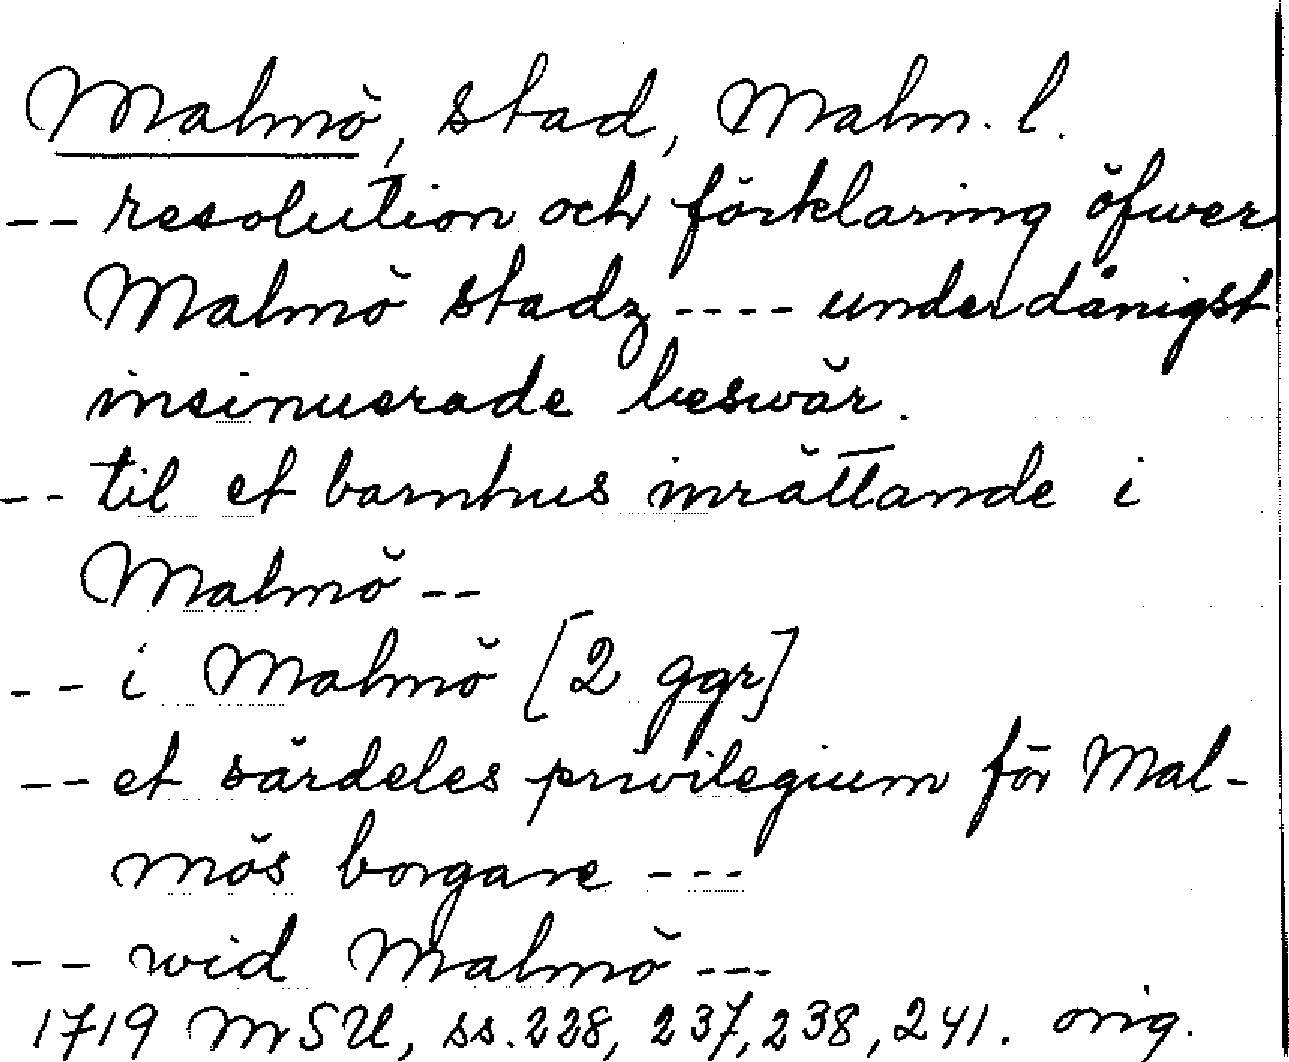 Malmö, stad, Malm. l.
-- resolution och förklaring öfwer
Malmö stadz ---- underdånigst
insinuerade beswär.
-- til et barnhus inrättande i
Malmö --
-- i Malmö [2 ggr]
-- et särdeles privilegium för Mal-
mös borgare ---
-- wid Malmö ---
1719 MSU, ss. 228, 237, 238, 241. orig.